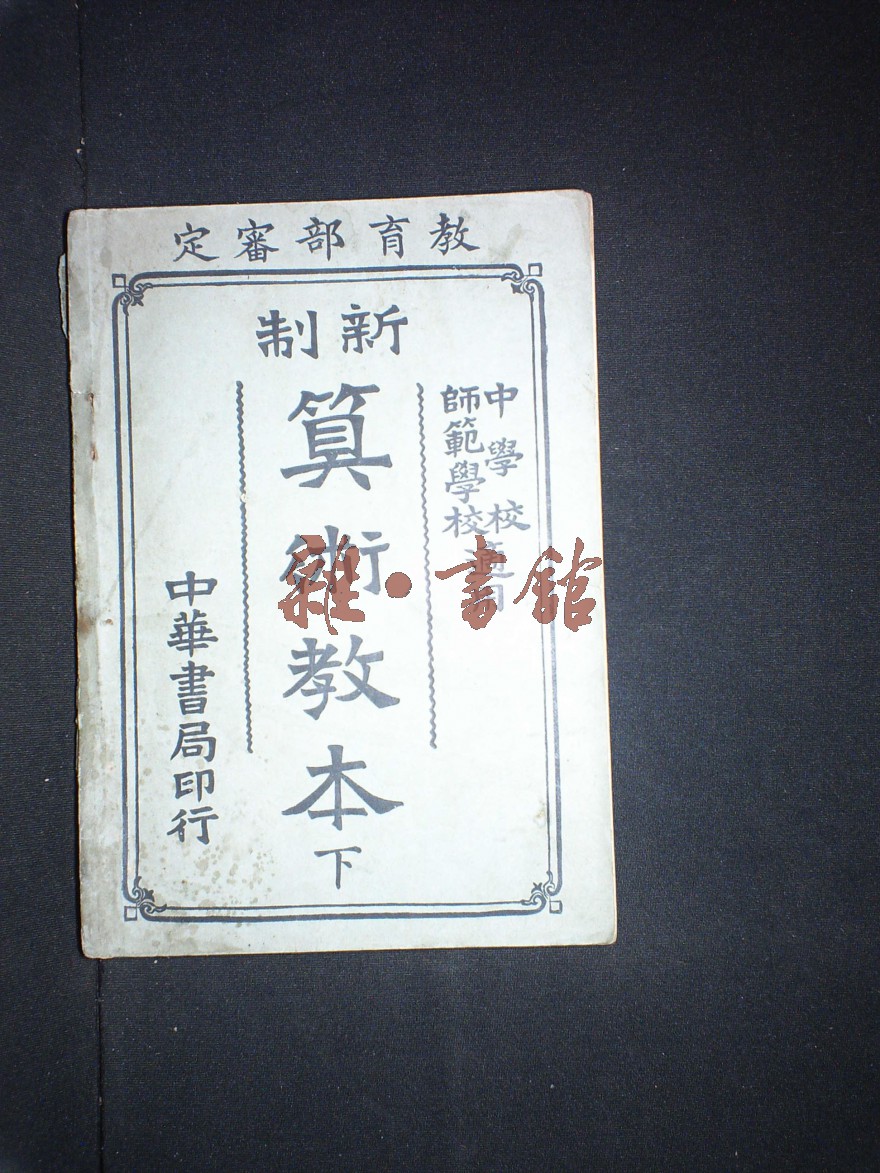 教育部審定
中學校
師範學校
適用
新制
算術教本
下
中華書局印行
雜·書館